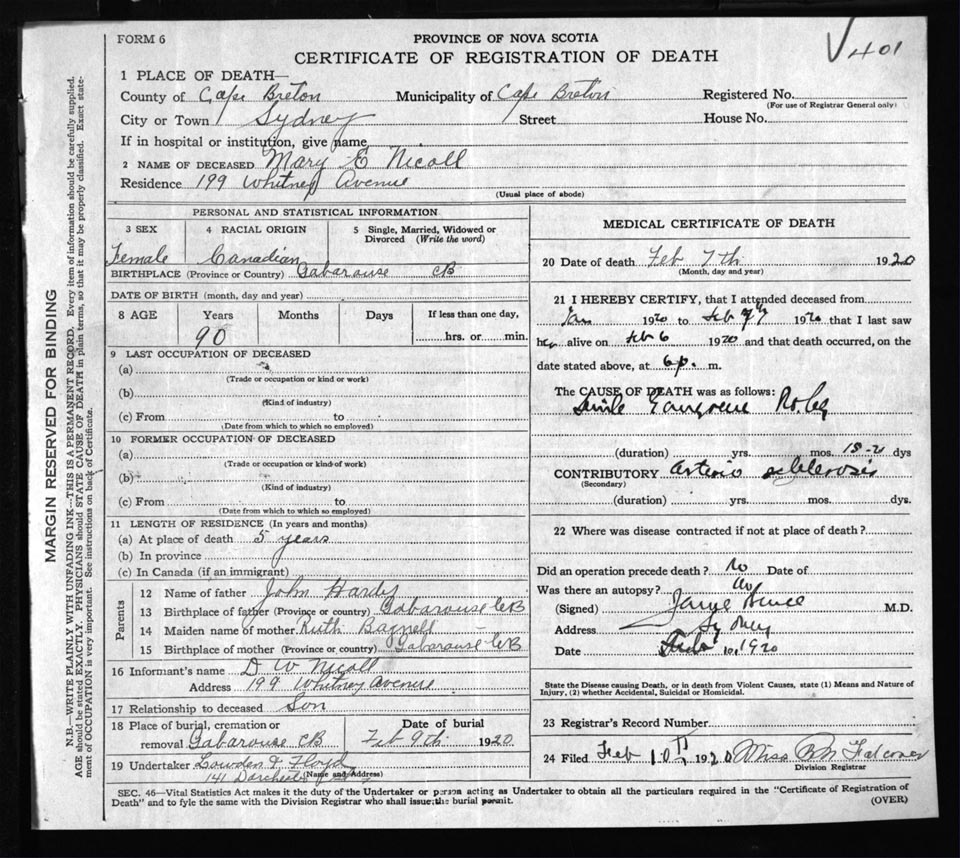 FORM 6
PROVINCE OF NOVA SCOTIA
CERTIFICATE OF REGISTRATION OF DEATH
√401
1 PLACE OF DEATH—
County of Cape Breton Municipality of Cape Breton Registered No.
(For use of Registrar General only)
City or Town Sydney Street House No.
If in hospital or institution, give name
2 NAME OF DECEASED Mary E Nicoll
Residence 199 Whitney Avenue
(Usual place of abode)
PERSONAL AND STATISTICAL INFORMATION
3 SEX 4 RACIAL ORIGIN 5 Single, Married, Widowed or Divorced (Write the word)
Female Canadian
BIRTHPLACE (Province or Country) Gabarouse CB
DATE OF BIRTH (month, day and year)
8 AGE Years Months Days If less than one day,
90 hrs. or min.
9 LAST OCCUPATION OF DECEASED
(a)
(Trade or occupation or kind or work)
(b)
(Kind of industry)
(c) From to
(Date from which to which so employed)
10 FORMER OCCUPATION OF DECEASED
(a)
(Trade or occupation or kind of work)
(b)
(Kind of industry)
(c) From to
(Date from which to which so employed)
11 LENGTH OF RESIDENCE (In years and months)
(a) At place of death 5 years
(b) In province
(c) In Canada (if an immigrant)
Parents
12 Name of father John Hardy
13 Birthplace of father (Province or country) Gabarouse CB
14 Maiden name of mother Ruth Bagnell
15 Birthplace of mother (Province or country) Gabarouse CB
16 Informant's name D W Nicoll
Address 199 Whitney Avenue
17 Relationship to deceased Son
18 Place of burial, cremation or removal Gabarouse CB
Date of burial Feb 9th 1920
19 Undertaker Lowden & Floyd
141 Dorchester
(Name and Address)
MEDICAL CERTIFICATE OF DEATH
20 Date of death Feb 7th 1920
(Month, day and year)
21 I HEREBY CERTIFY, that I attended deceased from
Jan 1920 to Feb 7th 1920 that I last saw
her alive on Feb 6 1920 and that death occurred, on the
date stated above, at 6 p. m.
The CAUSE OF DEATH was as follows:
Senile Gangrene R. leg
(duration) yrs. mos. dys
CONTRIBUTORY Arterio sclerosis
(Secondary)
(duration) yrs. mos. dys.
22 Where was disease contracted if not at place of death?
Did an operation precede death? No Date of
Was there an autopsy? No
(Signed) M.D.
Address Sydney
Date Feb 10, 1920
State the Disease causing Death, or in death from Violent Causes, state (1) Means and Nature of
Injury, (2) whether Accidental, Suicidal or Homicidal.
23 Registrar's Record Number
24 Filed Feb 10th 1920 Miss B M Falconer
Division Registrar
SEC. 46—Vital Statistics Act makes it the duty of the Undertaker or person acting as Undertaker to obtain all the particulars required in the "Certificate of Registration of
Death" and to fyle the same with the Division Registrar who shall issue the burial permit.
(OVER)
MARGIN RESERVED FOR BINDING
N.B.—WRITE PLAINLY WITH UNFADING INK—THIS IS A PERMANENT RECORD. Every item of information should be carefully supplied.
AGE should be stated EXACTLY. PHYSICIANS should STATE CAUSE OF DEATH in plain terms, so that it may be properly classified. Exact state-
ment of OCCUPATION is very important. See instructions on back of Certificate.